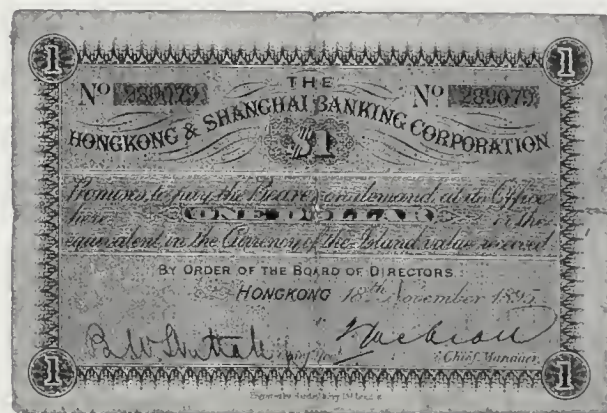 1 1
THE
No 289079 No 289079
HONGKONG & SHANGHAI BANKING CORPORATION
$1
Promises to pay the Bearer on demand at its Office
here ONE DOLLAR or the
equivalent in the Currency of the Island value received
BY ORDER OF THE BOARD OF DIRECTORS.
HONGKONG 18th November 1895
Chief Manager
1 1